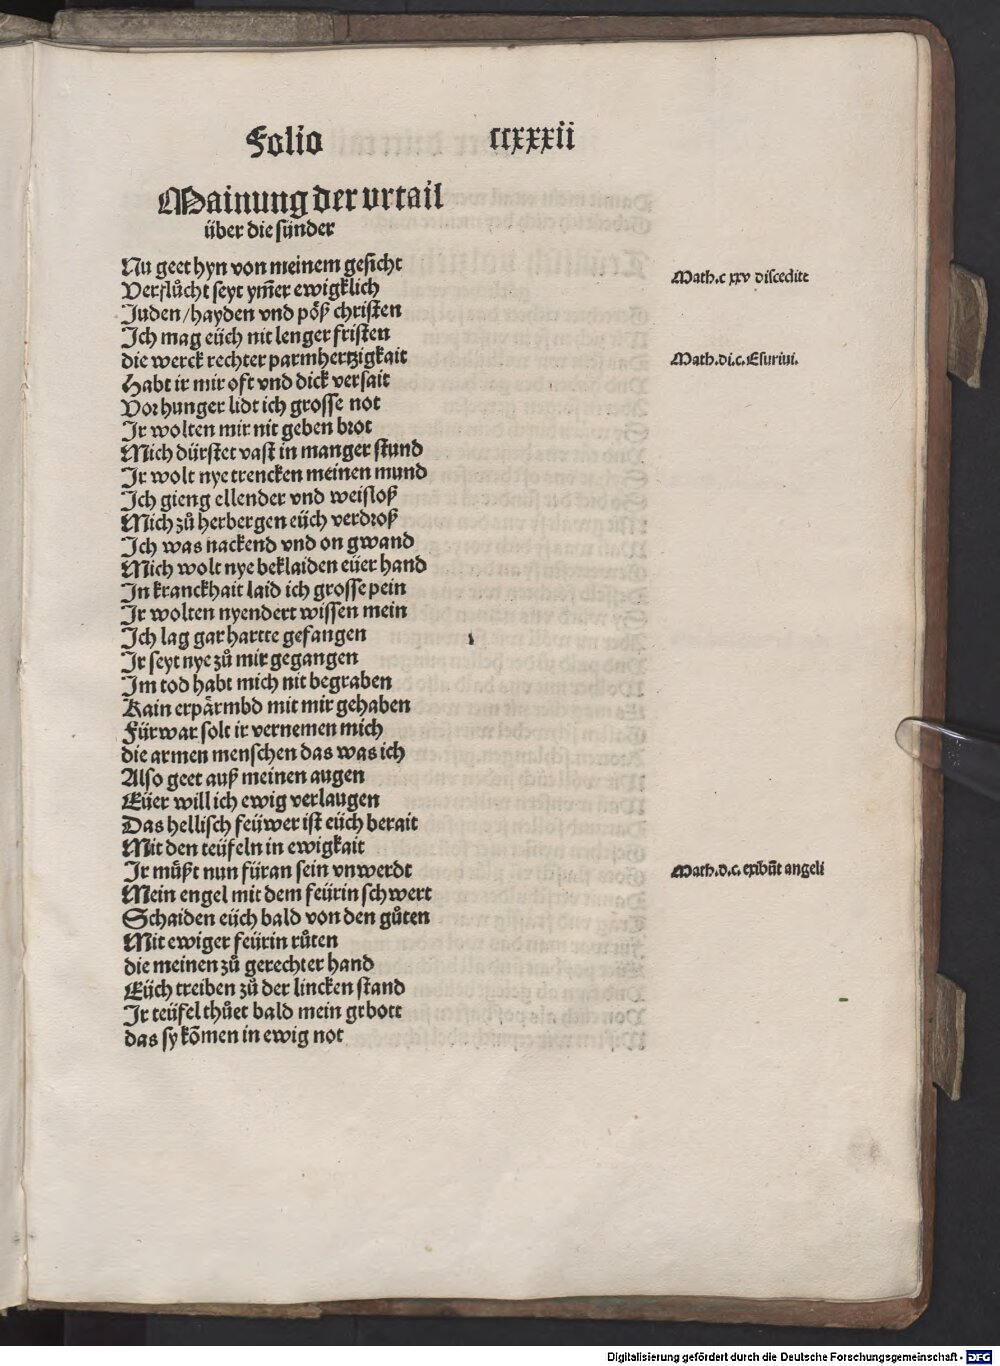 Folio ccxxxii
Mainung der vrtail
über die sünder
Nu geet hyn von meinem gesicht
Math.c xxv discedite
Verflůcht seyt ym̄er ewigklich
Juden/hayden vnd pöß christen
Ich mag eüch nit lenger fristen
die werck rechter parmhertzigkait
Math.di.c.Esuriui.
Habt ir mir oft vnd dick versait
Vor hunger lidt ich grosse not
Ir wolten mir nit geben brot
Mich dürstet vast in manger stund
Ir wolt nye trencken meinen mund
Ich gieng ellender vnd weisloß
Mich zů herbergen eüch verdroß
Ich was nackend vnd on gwand
Mich wolt nye beklaiden eüer hand
In kranckhait laid ich grosse pein
Ir wolten nyendert wissen mein
Ich lag gar hartte gefangen
Ir seyt nye zů mir gegangen
Im tod habt mich nit begraben
Kain erpärmbd mit mir gehaben
Fürwar solt ir vernemen mich
die armen menschen das was ich
Also geet auß meinen augen
Eüer will ich ewig verlaugen
Das hellisch feüwer ist eüch berait
Mit den teüfeln in ewigkait
Ir müßt nun füran sein vnwerdt
Math.d.c. exibūt angeli
Mein engel mit dem feürin schwert
Schaiden eüch bald von den gůten
Mit ewiger feürin růten
die meinen zů gerechter hand
Eüch treiben zů der lincken stand
Ir teüfel thůet bald mein gebott
das sy kōmen in ewig not
Digitalisierung gefördert durch die Deutsche Forschungsgemeinschaft - DFG